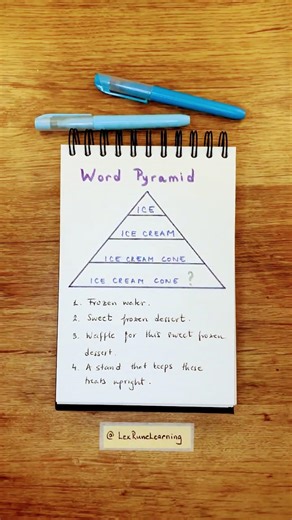 Word Pyramid
ICE
ICE CREAM
ICE CREAM CONE
ICE CREAM CONE ?
1. Frozen water.
2. Sweet frozen dessert.
3. Waffle for this sweet frozen
dessert.
4. A stand that keeps these
treats upright.
@LexRuneLearning